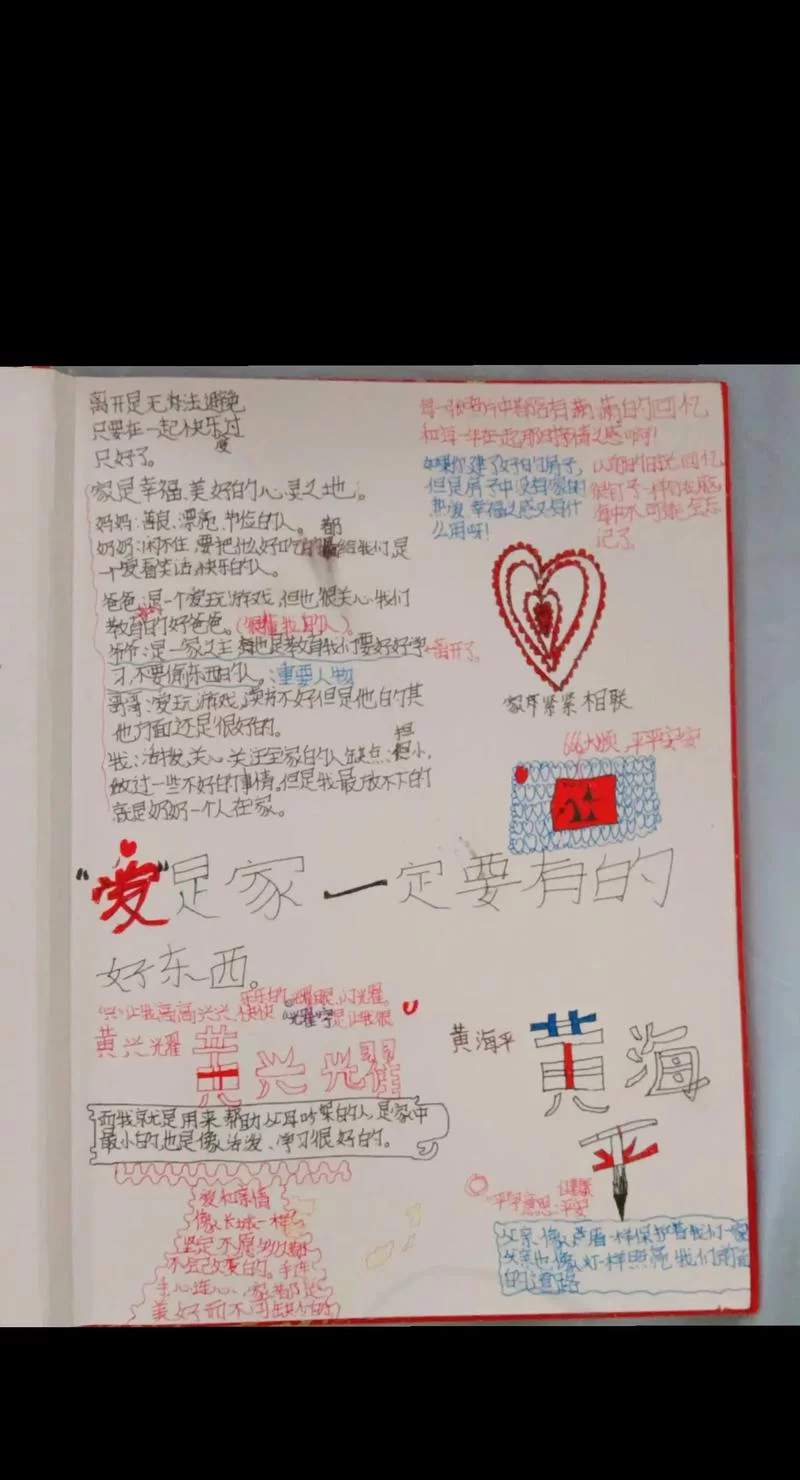 离开是无办法避免
只要在一起快乐过
度
只好了。
家是幸福、美好的心灵之地。
妈妈:善良、漂亮、节俭的人。
奶奶:闲不住,要把什么好吃的都给我们,是
一个爱看笑话,快乐的人。
爸爸:是一个爱玩游戏,但也很关心我们
教育的好爸爸。(很懂我的人)。
爷爷:是一家之主,也是教育我们要好好学
离开了。
习,不要偷东西的人。:重要人物
哥哥:爱玩游戏,读书不好但是他的其
他方面还是很好的。
我:活拨、关心、关注全家的人缺点:胆小,
做过一些不好的事情。但是我最放不下的
就是奶奶一个人在家。
每一张照片中都陪有满满的回忆
和每一年在一起那时
如果你建了好的的房子,
但是房子中没有家的
热没幸福之感又有什
么用呀!
以前的日记回忆
像钉子一样钉在脑
海中不可能会忘
记了。
紧紧相联
666大顺,平平安安
“爱”是家一定要有的
好东西。
“兴”让我高高兴兴、快快
乐乐的“耀眼、闪光耀。
黄兴光耀
黄兴光耀
黄海平
黄海
平
而我就是用来帮助父母吵架的人是家中
最小的,也是像活泼、学习很好的。
爱和亲情
像长城一样
坚定不
不会改变的。手连
手心连心,家都是
健康
“平”字意思:平安
父亲像盾一样保护着我们一家
父亲也像灯一样照亮我们前面
的道路